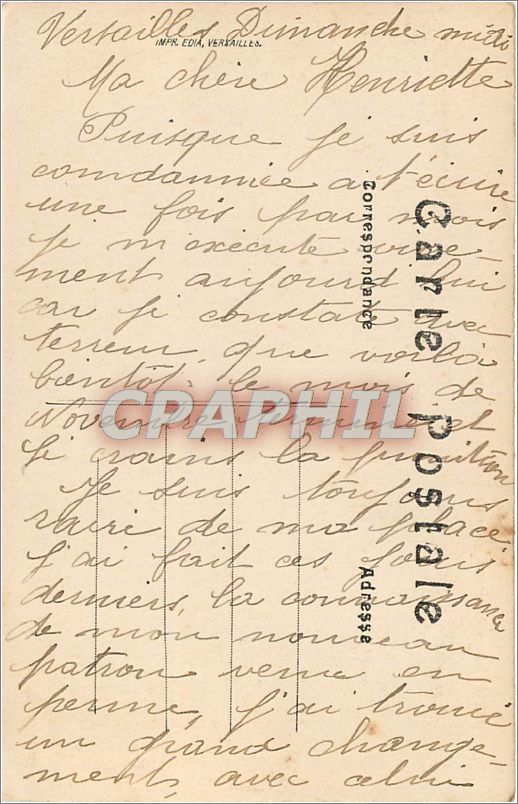 Versailles Dimanche midi
IMPR. EDIA, VERSAILLES.
Ma chère Henriette
Puisque je suis
comdannée a t'écrire
une fois par mois
je m'exécute vive-
ment aujourd hui
car je constate avec
terreur, que voilà
bientôt le mois de
Novembre terminé et
je crains la punition
Je suis toujours
ravie de ma place,
j'ai fait ces jours
derniers, la connaissance
de mon nouveau
patron venu en
perme, j'ai trouvé
un grand change-
ment, avec celui
Carte postale
Correspondance
Adresse
CPAPHIL